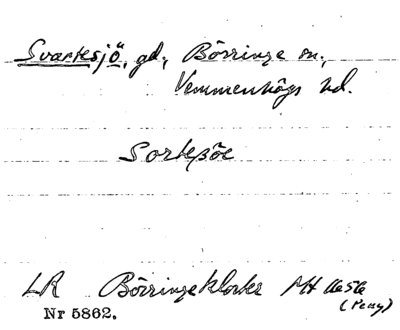 Svartesjö, gd, Börringe sn.,
Vemmenhögs hd.
Sortesöe
LR Börringekloster
Nr 5862.